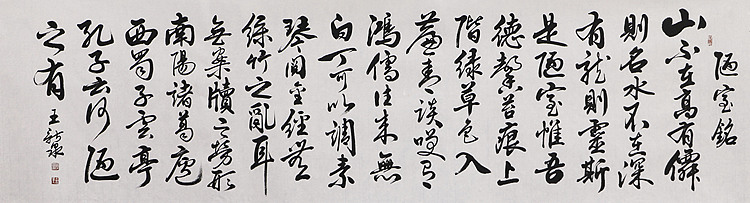 陋室銘
山不在高有僊
則名水不在深
有龍則靈斯
是陋室惟吾
德馨苔痕上
階緑草色入
簾青談笑有
鴻儒往来無
白丁可以調素
琴閲金經無
絲竹之亂耳
無案牘之勞形
南陽諸葛廬
西蜀子雲亭
孔子云何陋
之有
王